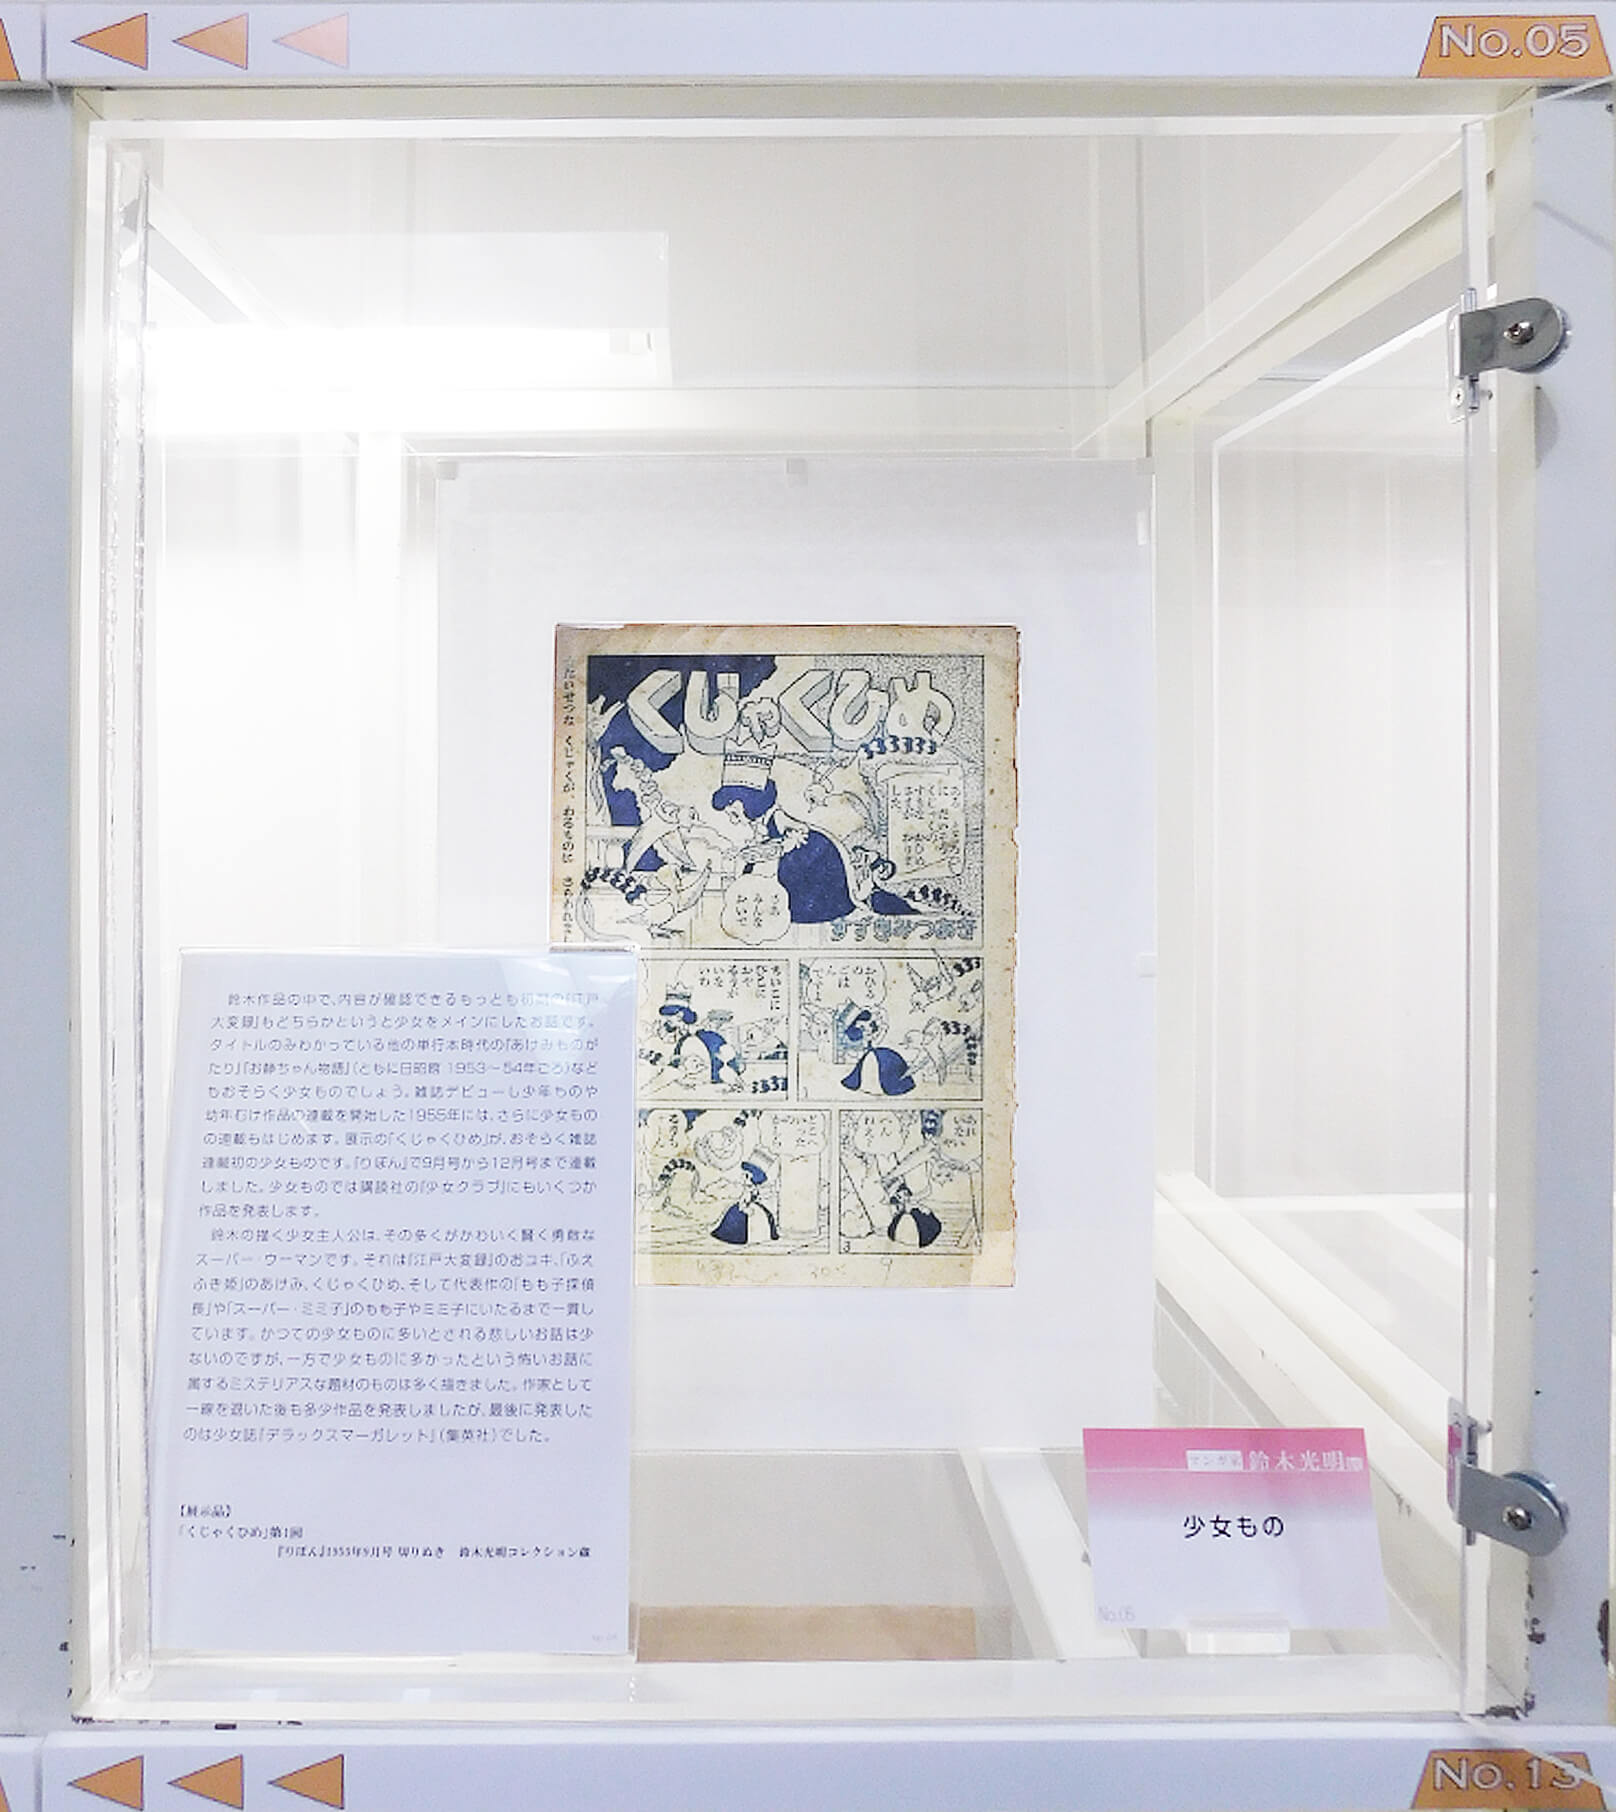 No.05
くじゃくひめ
すずきみつあき
さあ
みんな
おいで
おひる
のご
はん
ですよ
ちいこに
ひとに
おや
3
鈴木作品の中で、内容が確認できるもっとも初期の『江戸
大変録』もどちらかというと少女をメインにしたお話です。
タイトルのみわかっている他の単行本時代の『あけみものが
たり』『お静ちゃん物語』(ともに日昭館 1953〜54年ごろ)など
もおそらく少女ものでしょう。雑誌デビューし少年ものや
幼年むけ作品の連載を開始した1955年には、さらに少女もの
の連載もはじめます。展示の「くじゃくひめ」が、おそらく雑誌
連載初の少女ものです。『りぼん』で9月号から12月号まで連載
しました。少女ものでは講談社の『少女クラブ』にもいくつか
作品を発表します。
鈴木の描く少女主人公は、その多くがかわいく賢く勇敢な
スーパー・ウーマンです。それは『江戸大変録』のおユキ、「ふえ
ふき姫」のあけみ、くじゃくひめ、そして代表作の「もも子探偵
長」や「スーパー・ミミ子」のもも子やミミ子にいたるまで一貫し
ています。かつての少女ものに多いとされる悲しいお話は少
ないのですが、一方で少女ものに多かったという怖いお話に
属するミステリアスな題材のものは多く描きました。作家として
一線を退いた後も多少作品を発表しましたが、最後に発表した
のは少女誌『デラックスマーガレット』(集英社)でした。
【展示品】
「くじゃくひめ」第1回
『りぼん』1955年9月号 切りぬき 鈴木光明コレクション蔵
マンガ家 鈴木光明
少女もの
No.05
No.13